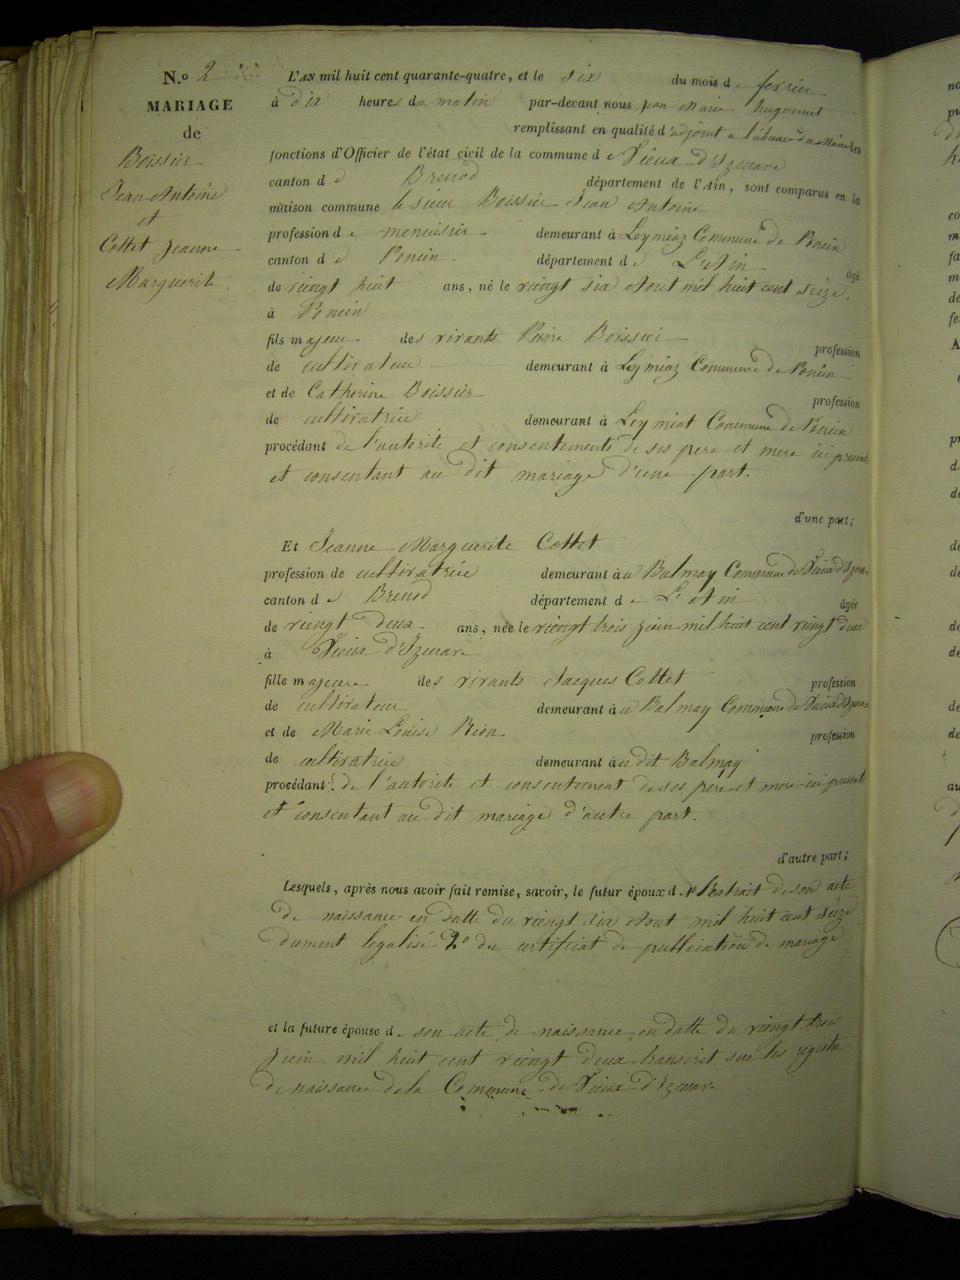 N.o 2
MARIAGE
de
Boissier
Jean Antoine
et
Cottet Jeanne
Marguerite
L'AN mil huit cent quarante-quatre, et le six du mois de fevrier
à dix heures du matin par-devant nous jean Marie hugonnet
remplissant en qualité d'adjoint a l'absence du Maire les
fonctions d'Officier de l'état civil de la commune de Vieux d'Izenave
canton de Brenod département de l'Ain, sont comparus en la
maison commune le sieur Boissier Jean Antoine
profession de menuisier demeurant à Leymiaz Commune de Poncin
canton de Poncin département de L'Ain âgé
de viengt huit ans, né le viengt six Aout mil huit cent seize
à Poncin
fils majeur des vivants Pierre Boissier profession
de cultivateur demeurant à Leymiaz Commune de Poncin
et de Catherine Boissier profession
de cultivatrice demeurant à Leymiat Commune de Poncin
procédant de l'autorité et consentements de ses pere et mere ici present
et consentant au dit mariage d'une part.
d'une part;
Et Jeanne Marguerite Cottet
profession de cultivatrice demeurant à a Balmay Commune de Vieux d'Izenave
canton de Brenod département de L'Ain âgée
de viengt deux ans, née le viengt trois juin mil huit cent viengt deux
à Vieux d'Izenave
fille majeure des vivants Jacques Cottet profession
de cultivateur demeurant à a Balmay Commune de Vieux d'Izenave
et de Marie Louise profession
de cultivatrice demeurant à au dit Balmay
procédant de l'autorité et consentement de ses pere et mere ici present
et consentant au dit mariage d'autre part.
d'autre part;
Lesquels, après nous avoir fait remise, savoir, le futur époux de l'extrait de son acte
de naissance en datte du viengt six Aout mil huit cent seize
dument legalisé 2o du certificat de publication de mariage
et la future épouse de son acte de naissance en datte du viengt trois
juin mil huit cent viengt deux transcrit sur les registre
de naissance de la Commune de Vieux d'Izenave